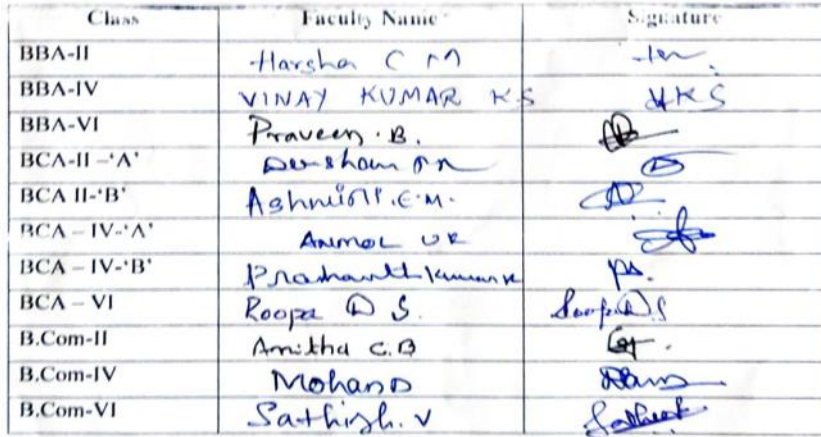 Class Faculty Name Signature
BBA-II Harsha C M
BBA-IV VINAY KUMAR KS VKS
BBA-VI Praveen . B.
BCA-II –‘A’ Darshan
BCA II-‘B’ E.M.
BCA – IV-‘A’ ANMOL UR
BCA – IV-‘B’ Prashanth Kumar K
BCA – VI Roopa D S. Roopa D S
B.Com-II Amitha C.B
B.Com-IV Mohan D
B.Com-VI Sathish. V